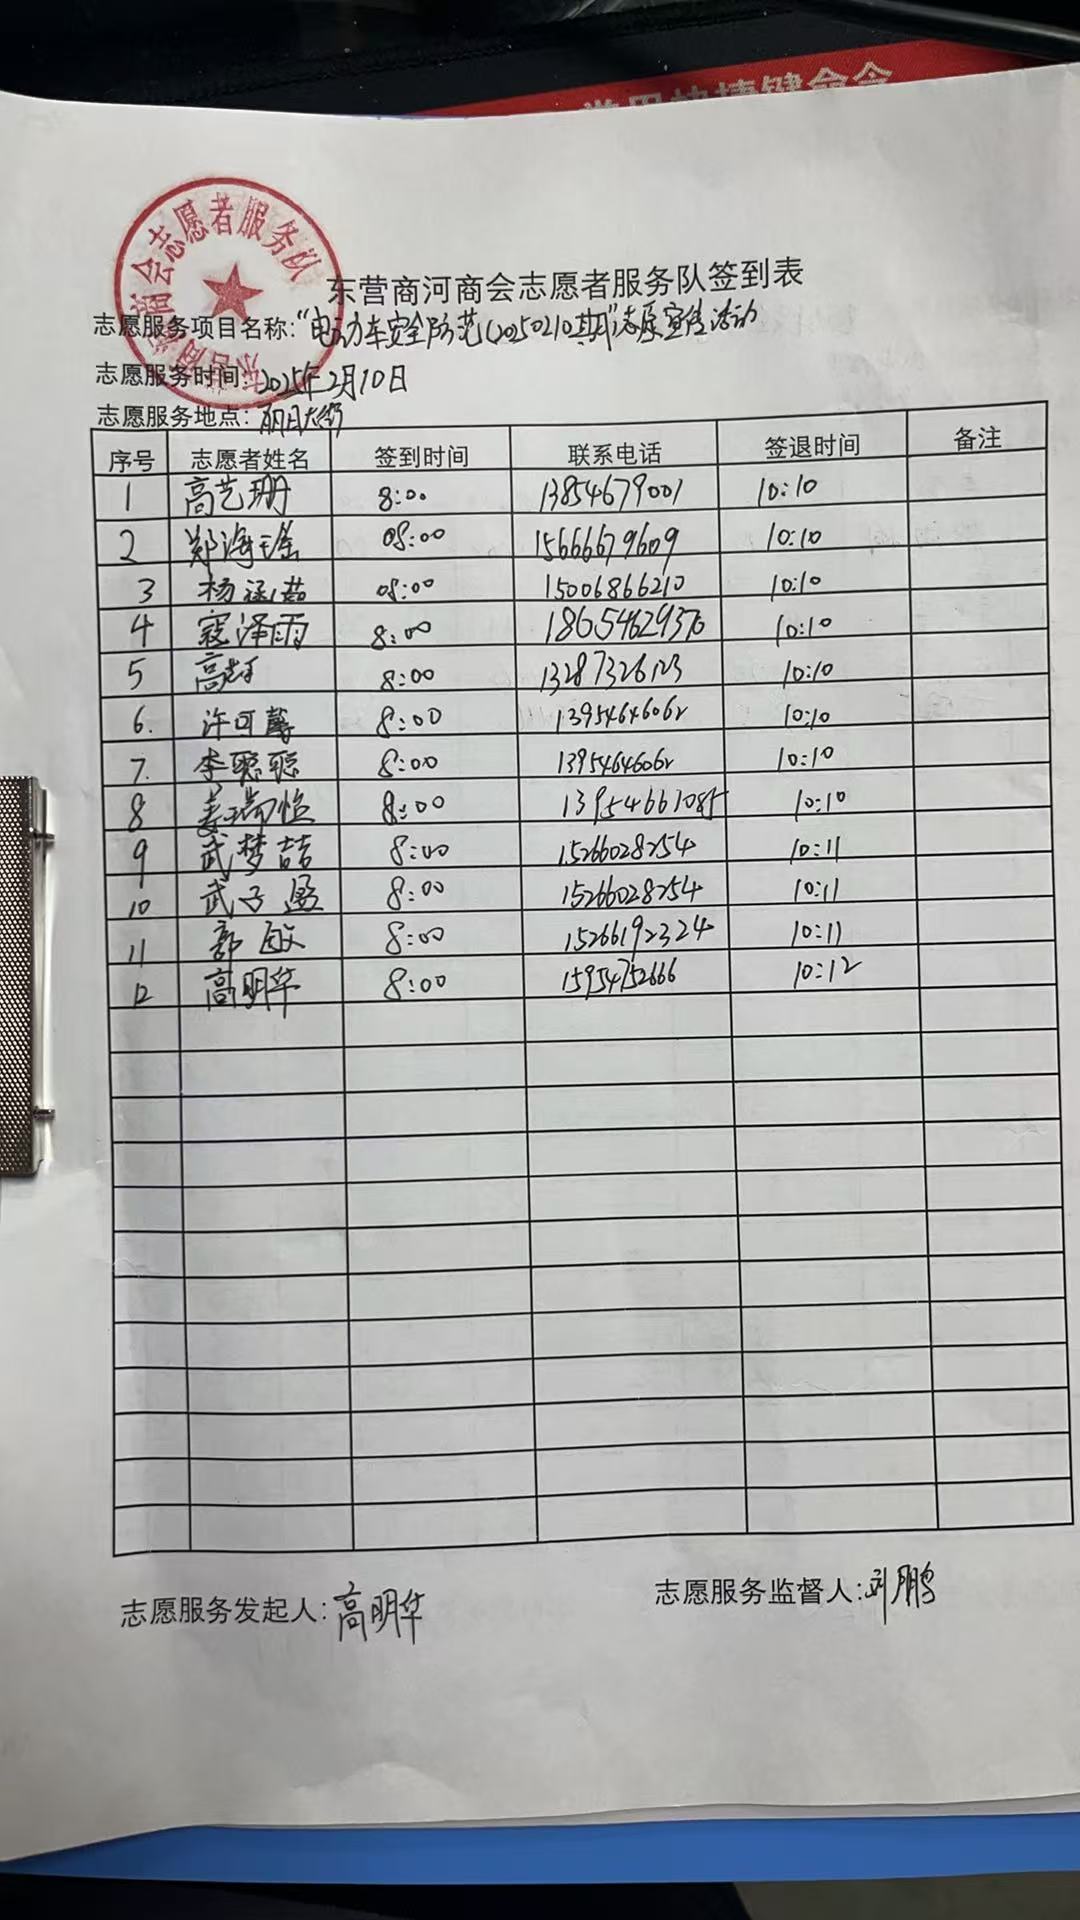 常用快捷键命令
东营商河商会志愿者服务队
东营商河商会志愿者服务队签到表
志愿服务项目名称:“电动车安全防范(20250210期)”志愿宣传活动
志愿服务时间:2025年2月10日
志愿服务地点:丽日大街
序号 志愿者姓名 签到时间 联系电话 签退时间 备注
1 高艺珊 8:00 13854679001 10:10
2 郑海瑶 08:00 15666679609 10:10
3 杨涵茹 08:00 15006866210 10:10
4 寇泽雨 8:00 18654629376 10:10
5 8:00 13287326123 10:10
6. 许可馨 8:00 13954646062 10:10
7. 李聪聪 8:00 13954646062 10:10
8 姜瑞怡 8:00 13954661085 10:10
9 武梦喆 8:00 15266028254 10:11
10 武子盈 8:00 15266028254 10:11
11 郭敏 8:00 15266192324 10:11
12 高明华 8:00 15954752666 10:12
志愿服务发起人:高明华 志愿服务监督人:刘鹏